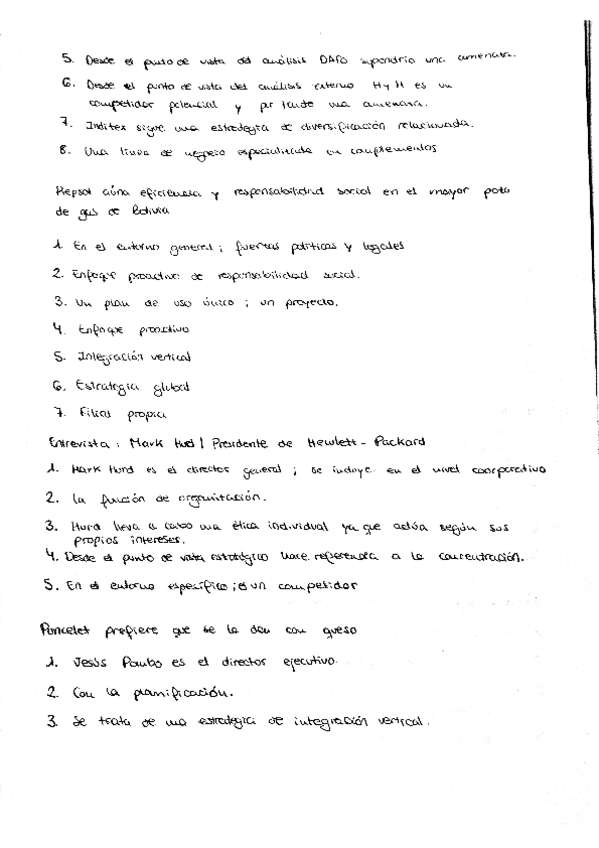 5. Desde el punto de vista del análisis DAFO supondría una amenaza.
6. Desde el punto de vista del análisis externo H y M es un
competidor potencial y por tanto una amenaza.
7. Inditex sigue una estrategia de diversificación relacionada.
8. Una línea de negocio especializada en complementos
Repsol aúna eficiencia y responsabilidad social en el mayor pozo
de gas de Bolivia
1. En el entorno general; fuerzas políticas y legales
2. Enfoque proactivo de responsabilidad social.
3. Un plan de uso único; un proyecto.
4. Enfoque proactivo
5. Integración vertical
6. Estrategia global
7. Filial propia
Entrevista: Mark Hurd | Presidente de Hewlett-Packard
1. Mark Hurd es el director general; se incluye en el nivel coorporativo
2. La función de organización.
3. Hurd lleva a cabo una ética individual ya que actúa según sus
propios intereses.
4. Desde el punto de vista estratégico hace referencia a la concentración.
5. En el entorno específico; es un competidor
Poncelet prefiere que se la den con queso
1. Jesús Pombo es el director ejecutivo.
2. Con la planificación.
3. Se trata de una estrategia de integración vertical.